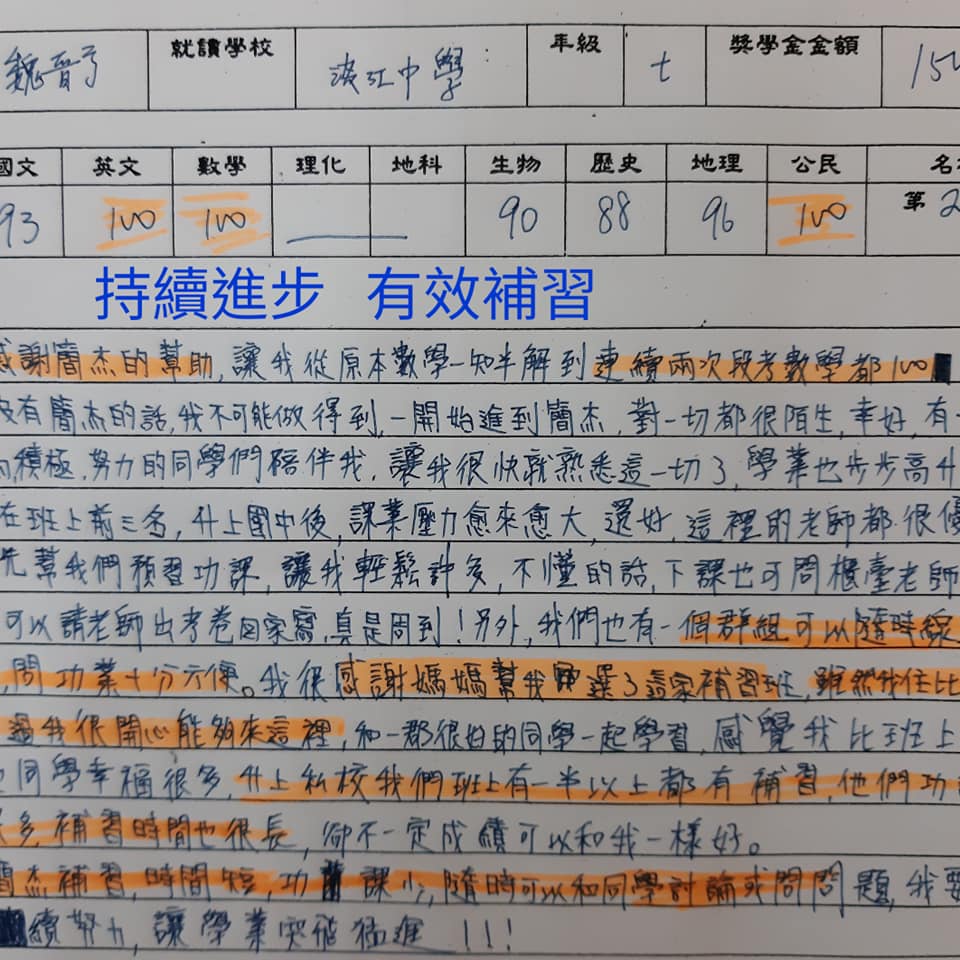 魏晉 就讀學校 淡江中學 年級 七 獎學金金額 15
國文 英文 數學 理化 地科 生物 歷史 地理 公民 名
93 100 100 90 88 96 100 第2
持續進步 有效補習
感謝簡杰的幫助,讓我從原本數學一知半解到連續兩次段考數學都100
沒有簡杰的話,我不可能做得到,一開始進到簡杰,對一切都很陌生,幸好,有一
積極.努力的同學們陪伴我,讓我很快就熟悉這一切了,學業也步步高升
在班上前三名,升上國中後,課業壓力愈來愈大,還好,這裡的老師都很優
先幫我們預習功課,讓我輕鬆許多,不懂的話,下課也可問櫃臺老師
可以請老師出考卷回家寫,真是周到!另外,我們也有一個群組可以隨時線
,問功業十分方便。我很感謝媽媽幫我選了這家補習班,雖然我住比
過我很開心能夠來這裡,和一群很好的同學一起學習,感覺我比班上
同學幸福很多,升上私校我們班上有一半以上都有補習,他們功
多,補習時間也很長,卻不一定成績可以和我一樣好。
簡杰補習,時間短,功課少,隨時可以和同學討論或問問題,我要
續努力,讓學業突飛猛進!!!